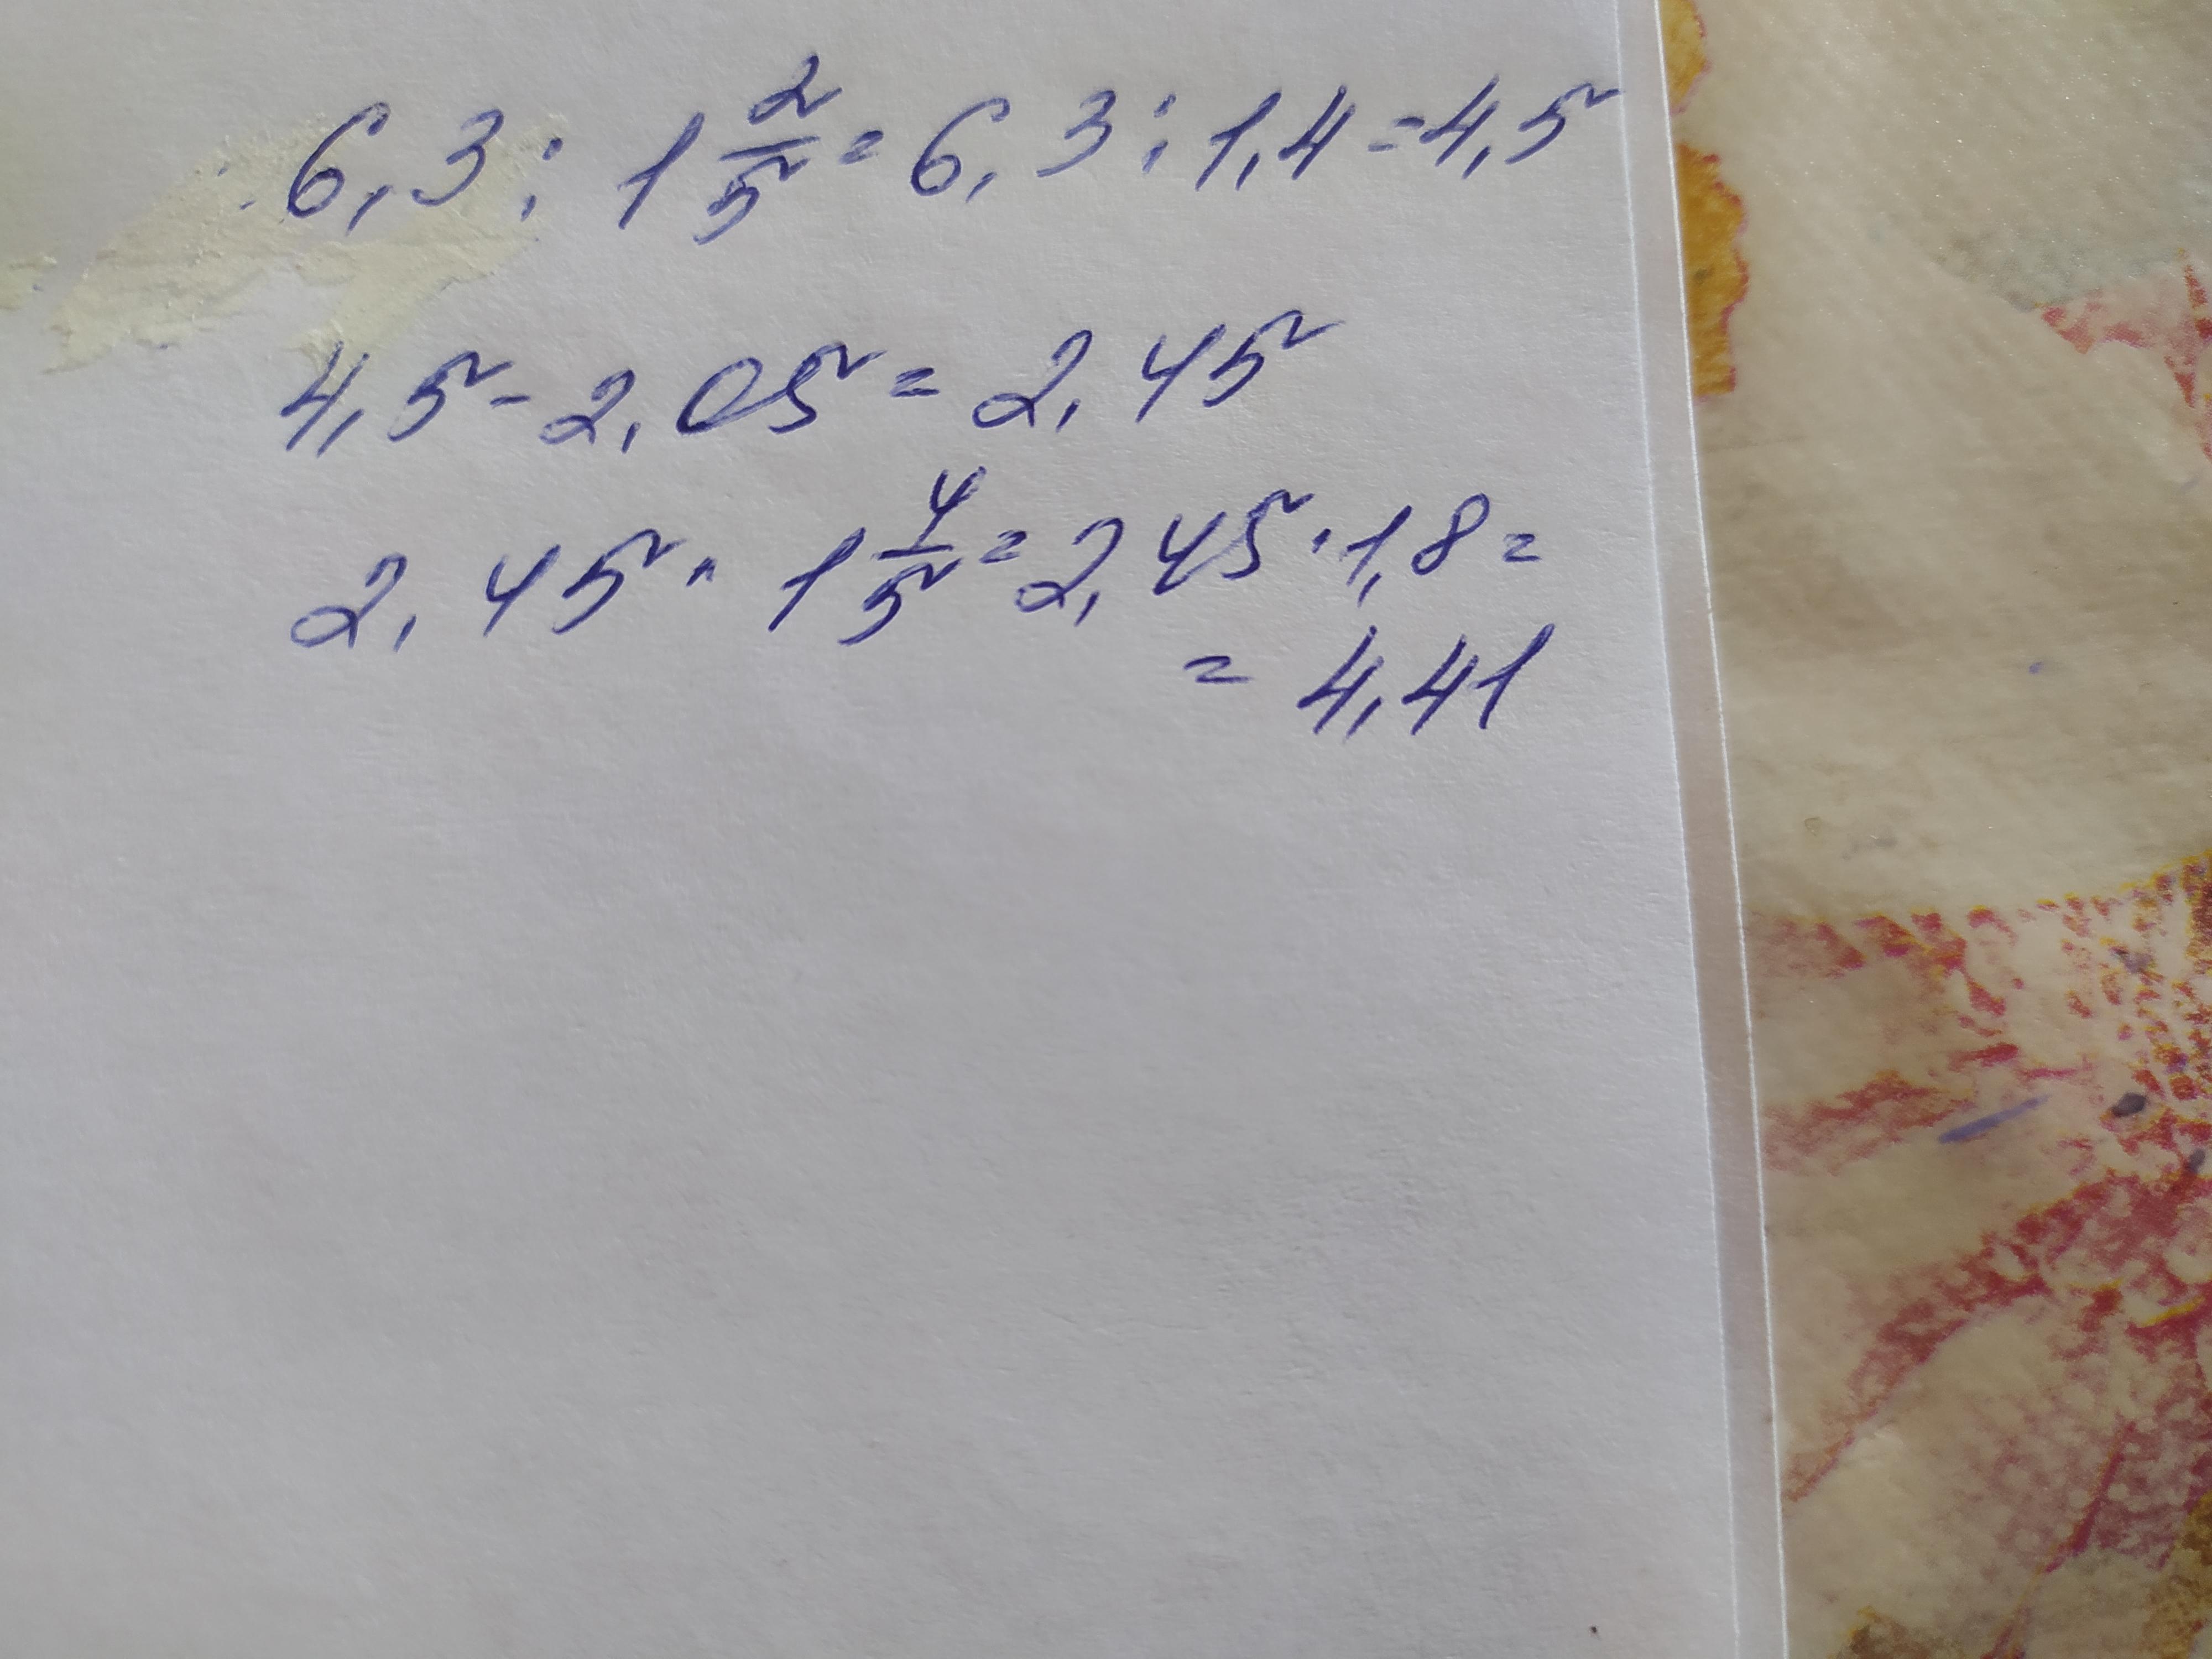 6,3 : 1 2/5 = 6,3 : 1,4 = 4,5
4,5 - 2,05 = 2,45
2,45 · 1 4/5 = 2,45 · 1,8 =
= 4,41